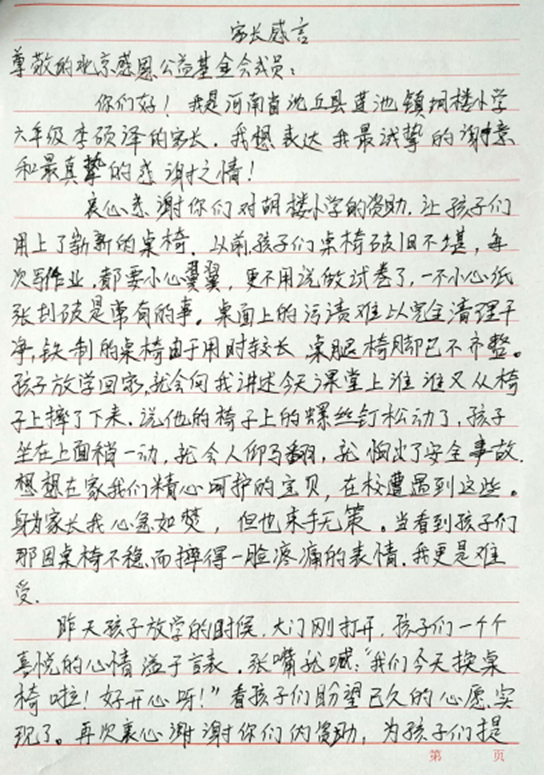 家长感言
尊敬的北京感恩公益基金会成员:
你们好！我是河南省沈丘县莲池镇胡楼小学
六年级李硕泽的家长。我想表达我最诚挚的谢意
和最真挚的感谢之情！
衷心感谢你们对胡楼小学的资助。让孩子们
用上了新新的桌椅。以前,孩子们桌椅破旧不堪，每
次写作业，都要小心翼翼，更不用说做试卷了，一不小心纸
张划破是常有的事。桌面上的污渍难以完全清理干
净,铁制的桌椅由于用时较长，桌腿椅脚已不齐整。
孩子放学回家,就会向我讲述今天课堂上谁谁又从椅
子上摔了下来.说他的椅子上的螺丝钉松动了,孩子
坐在上面稍一动，就会人仰马翻，就怕出了安全事故.
想想在家我们精心呵护的宝贝，在校遭遇到这些。
身为家长我心急如焚，但也束手无策。当看到孩子们
那因桌椅不稳而摔得一脸疼痛的表情.我更是难
受.
昨天孩子放学的时候.大门刚打开,孩子们一个个
喜悦的心情溢于言表，张嘴就喊:“我们今天换桌
椅啦！好开心呀！”看孩子们盼望已久的心愿实
现了。再次衷心谢谢你们的资助，为孩子们提
第 页